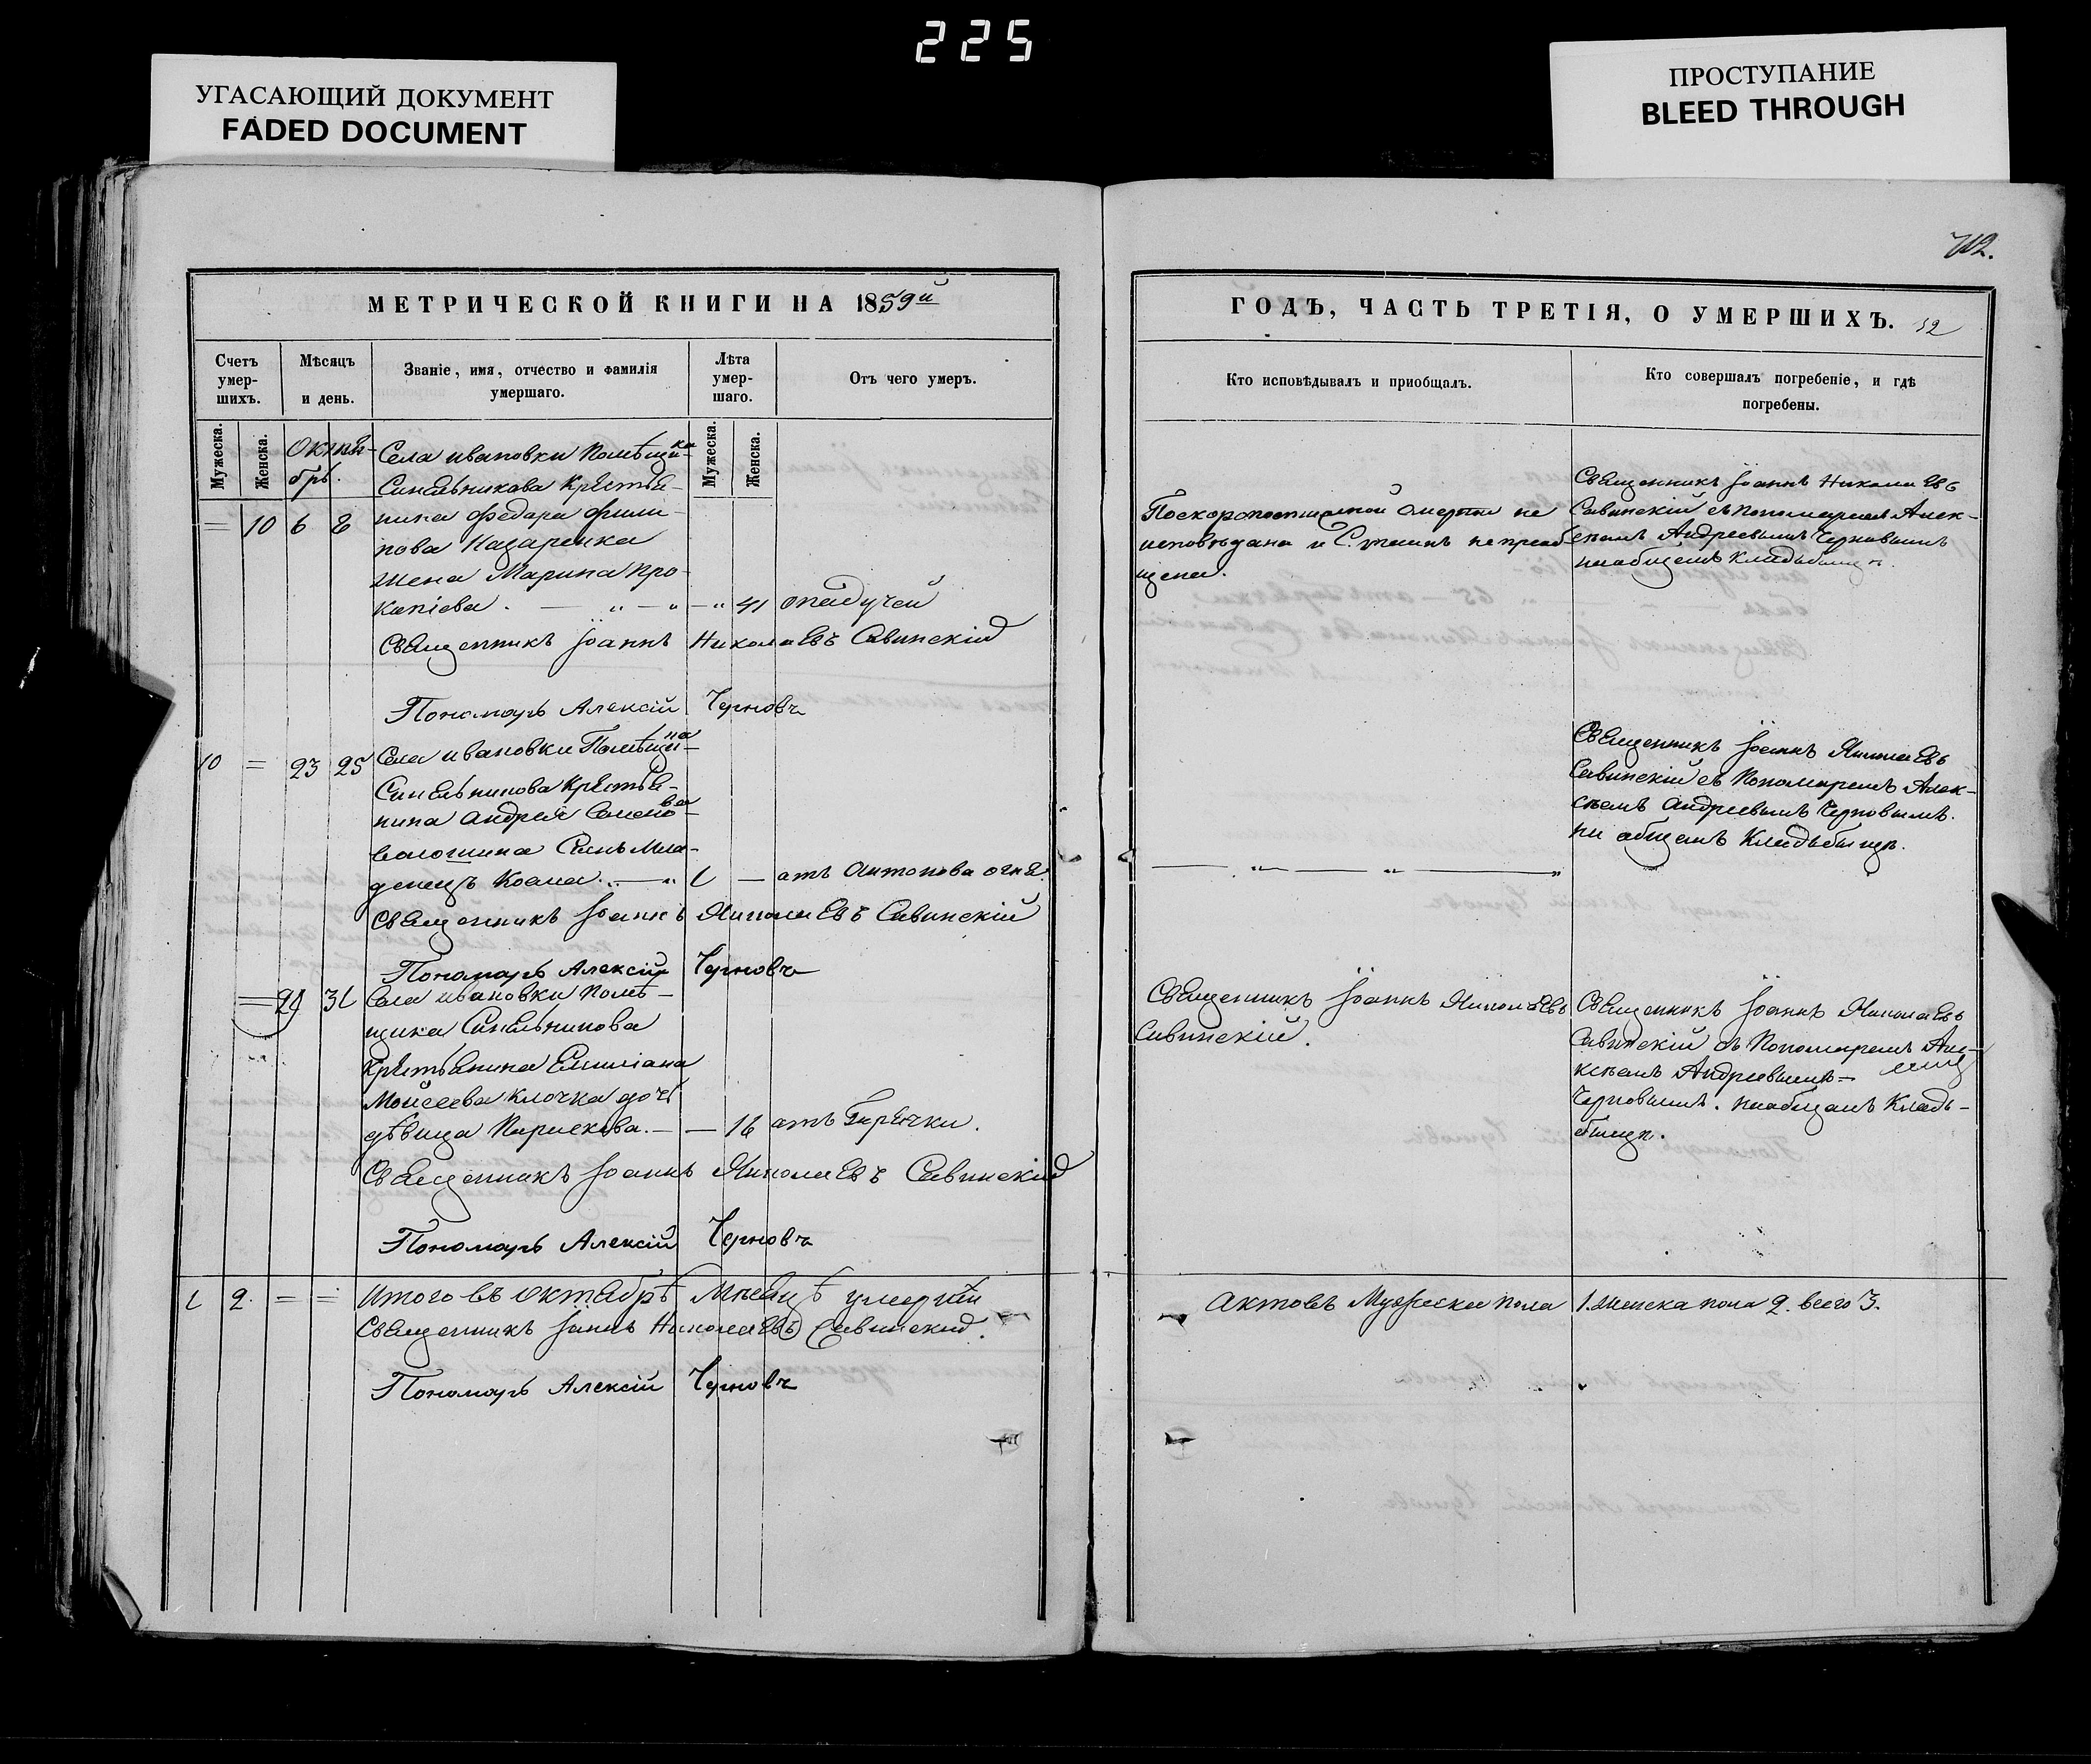 225
УГАСАЮЩИЙ ДОКУМЕНТ
FADED DOCUMENT
ПРОСТУПАНИЕ
BLEED THROUGH
МЕТРИЧЕСКОЙ КНИГИ НА 1859й
Счетъ умер-шихъ.
Мѣсяцъ и день.
Званіе, имя, отчество и фамилія умершаго.
Лѣта умер-шаго.
Отъ чего умеръ.
Мужеска.
Женска.
Мужеска.
Женска.
Октя-
брь.
Села ивановки Помѣщи-ка
Синельникова Крестья-
= 10 6 8 нина Федора Фили-
пова Назаренка
жена Марина Про-
копіева. — „ — „ — „ 41 падучей
Священникъ Іоаннъ Николаевъ Савинскій
Пономарь Алексій Черновъ
10 = 23 25 Села ивановки Помѣщи-ка
Синельникова Крестья-
нина Андрея Семено-ва
сынъ Мла-
денецъ — „ 1 — отъ Антонова огня.
Священникъ Іоаннъ Николаевъ Савинскій
Пономарь Алексій Черновъ
= 29 31 Села ивановки Помѣ-
щика Синельникова
Крестьянина Емиліана
Мойсеева Клочка дочь
дѣвица Параскева. — — 16 отъ Горячки.
Священникъ Іоаннъ Николаевъ Савинскій
Пономарь Алексій Черновъ
1 2. = = Итого въ Октябрѣ Мѣсяцѣ умерши
Священникъ Іоаннъ Николаевъ Савинскій.
Пономарь Алексій Черновъ
ГОДЪ, ЧАСТЬ ТРЕТІЯ, О УМЕРШИХЪ.
Кто исповѣдывалъ и приобщалъ.
Кто совершалъ погребеніе, и гдѣ погребены.
Поскоропостижной смерти не
исповѣдана и С. таинъ не приоб
щена.
Священникъ Іоаннъ Николаевъ
Савинскій съ пономаремъ Алек-
сѣемъ Андреевымъ Черновымъ
наобщемъ Кладьбищѣ.
Священникъ Іоаннъ Николаевъ
Савинскій съ Пономаремъ Алек-
сѣемъ Андреевымъ Черновымъ.
на общемъ Кладьбищѣ.
— „ — „ — „
Священникъ Іоаннъ Николаевъ
Савинскій.
Священникъ Іоаннъ Николаевъ
Савинскій съ Пономаремъ Але-
ксѣемъ Андреевымъ =
Черновымъ. наобщемъ Кладь-
бищѣ.
Актовъ Мужеска пола 1. Женска пола 2. всего 3.